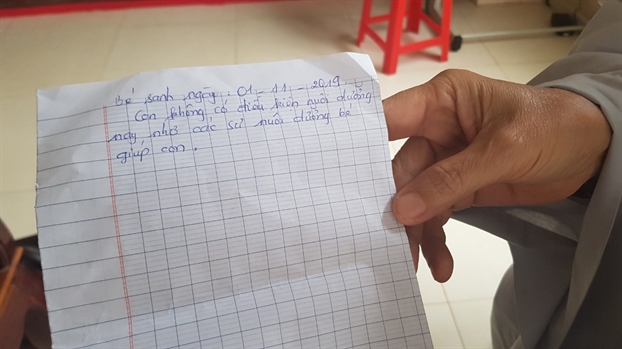 Bé sanh ngày: 01-11-2019
Con không có điều kiện nuôi dưỡng
nay nhờ các sư nuôi dưỡng bé
giúp con.